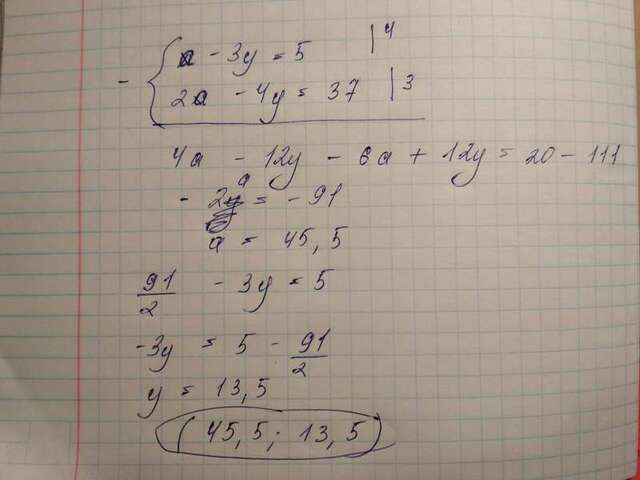 a - 3y = 5 |4
- 2a - 4y = 37 |3
4a - 12y - 6a + 12y = 20 - 111
- 2a = - 91
a = 45,5
91/2 - 3y = 5
-3y = 5 - 91/2
y = 13,5
(45,5; 13,5)